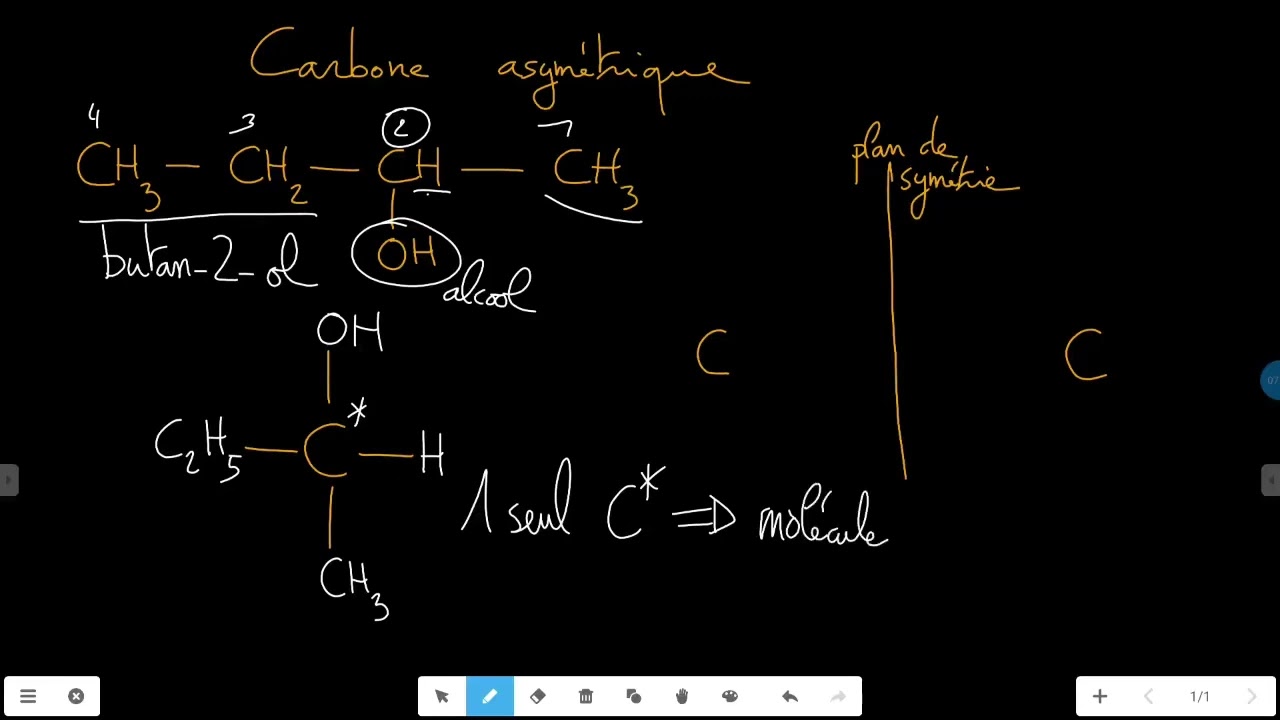 Carbone asymétrique
4 3 2 1
CH3 — CH2 — CH — CH3
OH
butan-2-ol
alcool
plan de
symétrie
OH
C2H5 — C* — H
CH3
C C
1 seul C* => molécule
1/1